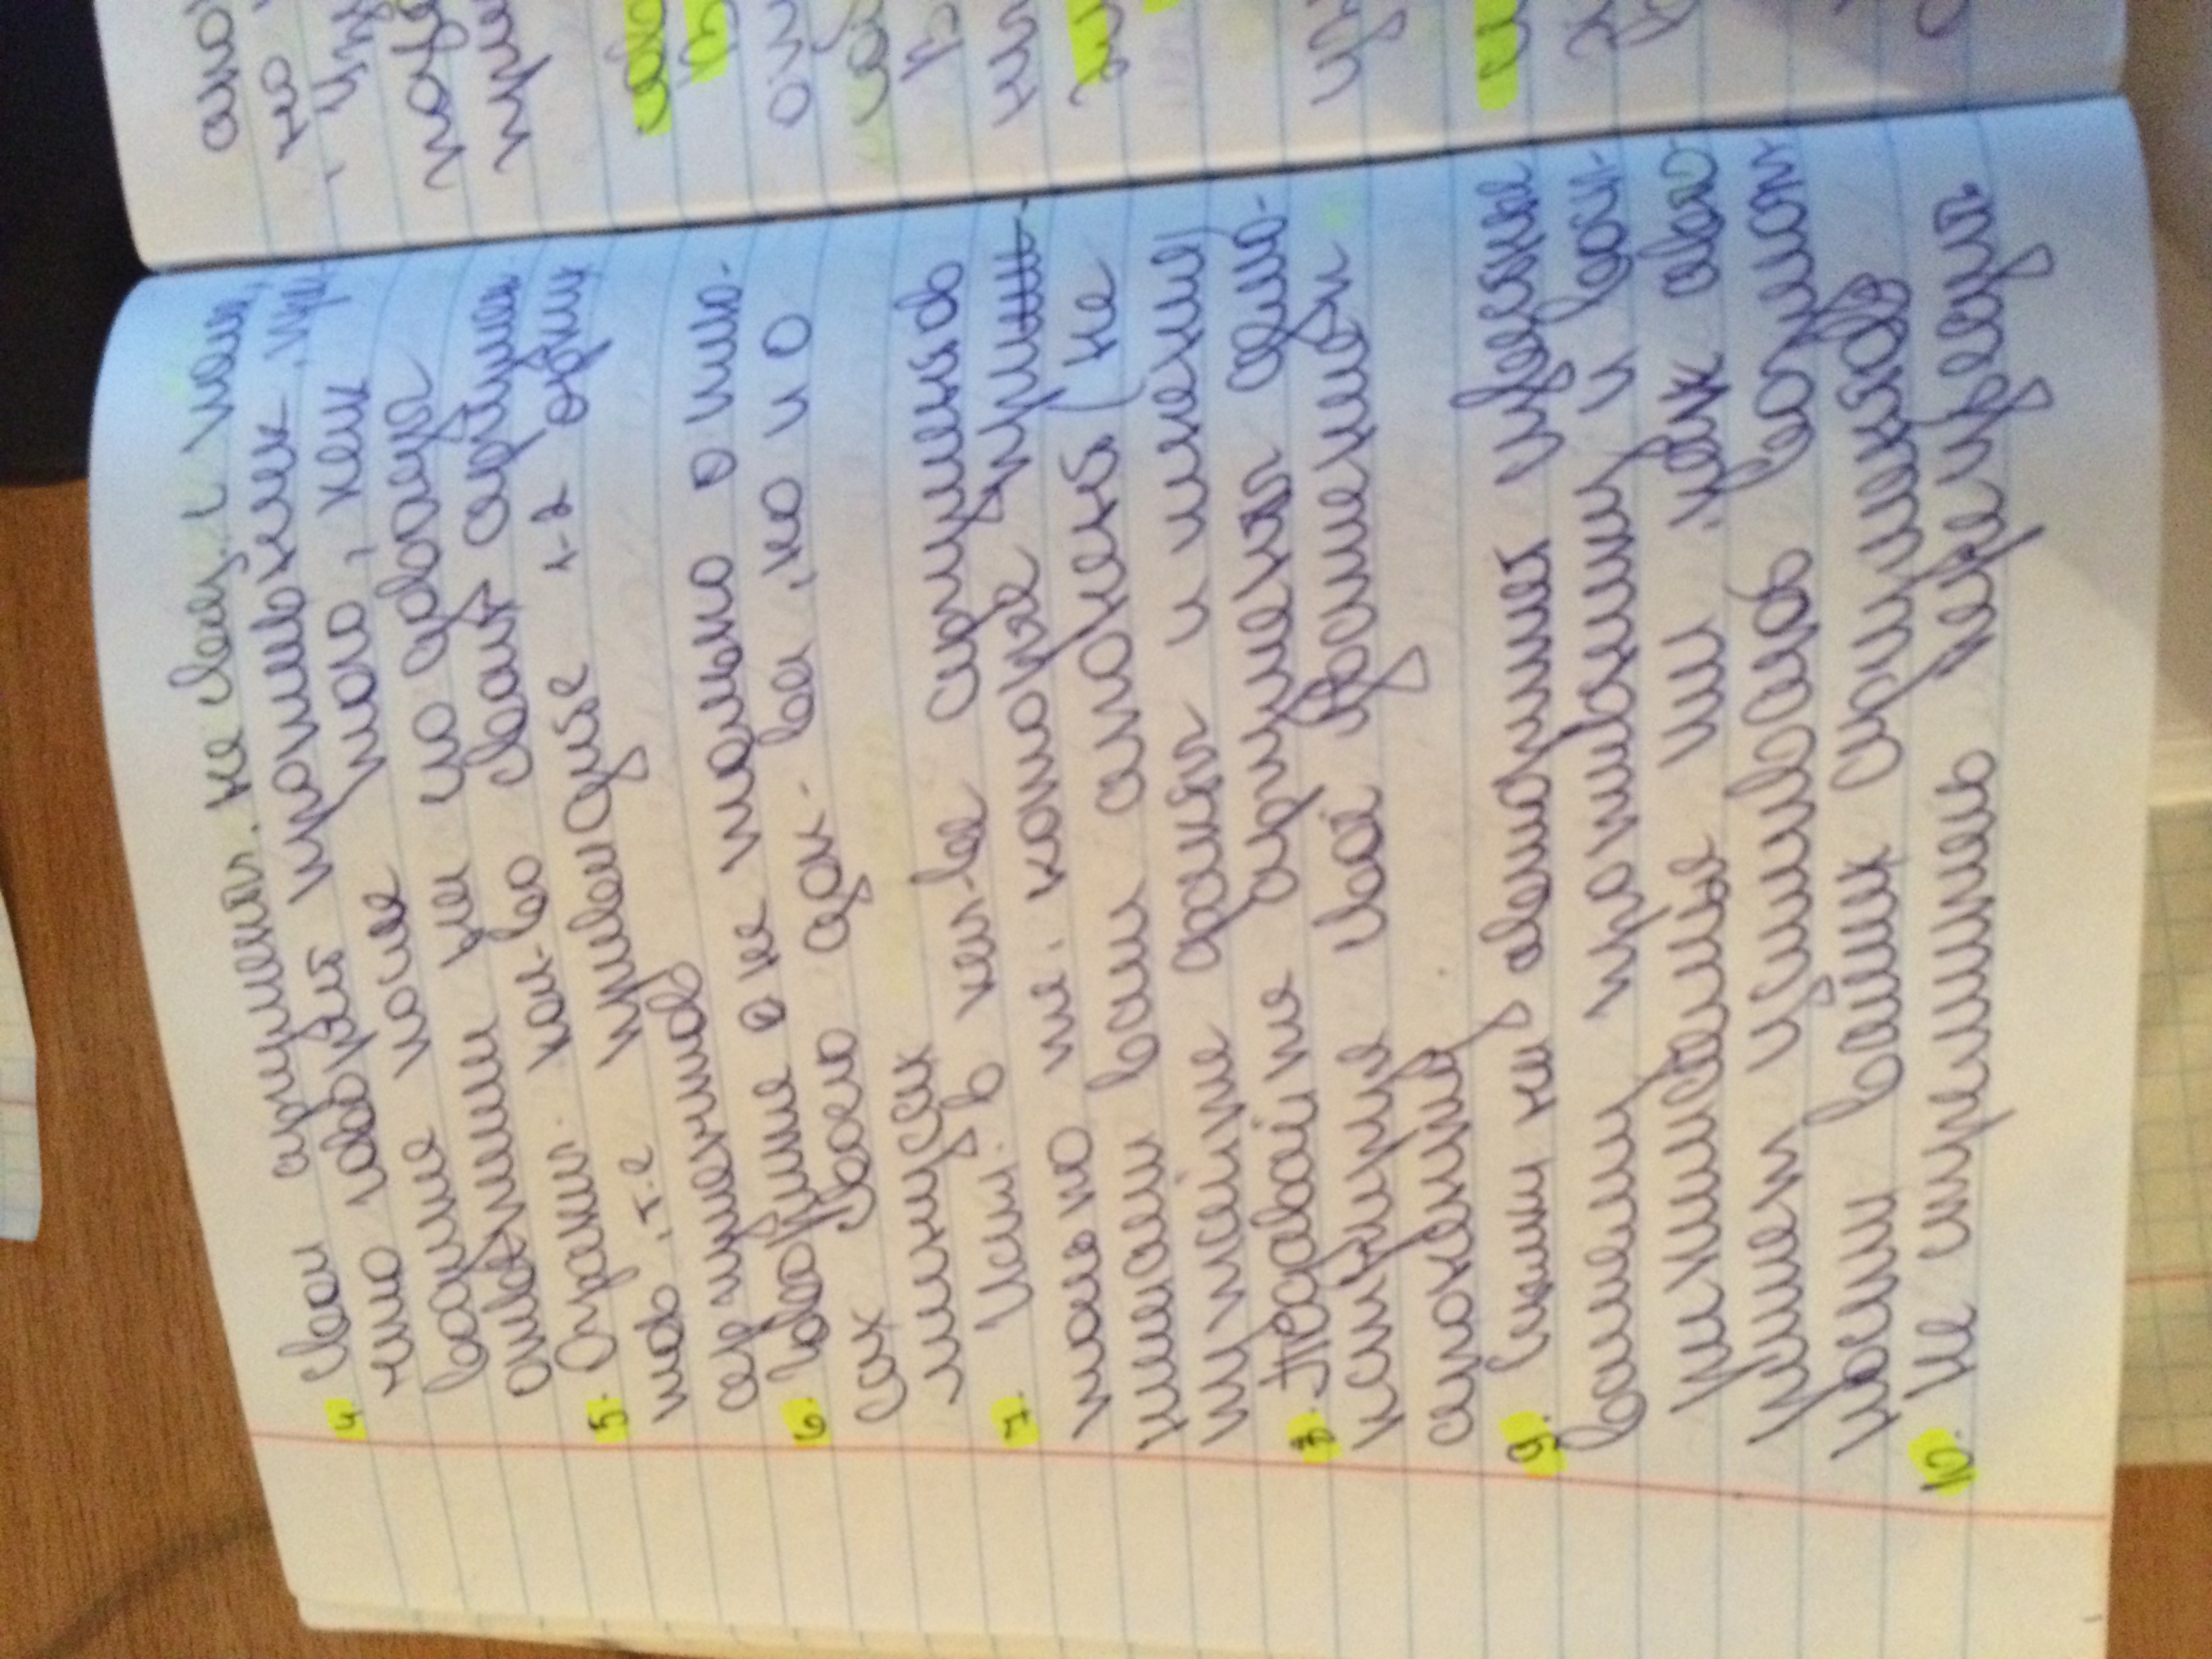 4. Свои аргументы. не связ. с тем,
что говорит противник, при-
водите после того, как
ответили на его доводы
5. Огранич. кол-во своих аргумен
тов, т.е приведите 1-2 ярких
аргументов
6. Говорите о не только о плю-
сах своего док-ва, но и о
минусах
7. Испл. в кач-ве аргументов
только те, которые при
нимает ваш апонент (не
путайте факты и мнения)
8. Подавайте аргументы демо-
нстрируя своё уважение к
апоненту
9. Ссылки на авторитет известные
вашему противнику и восп-
ринимаемые им, как авто-
ритет усиливают возмож
ности ваших аргументов
10. Не стремитесь переубедить
апо
но